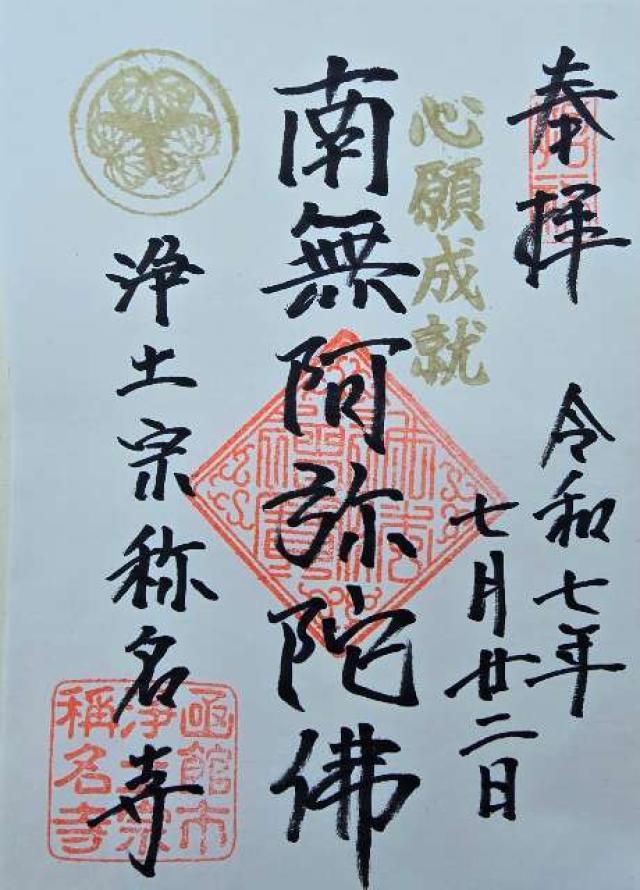 奉拝
令和七年
七月廿二日
心願成就
南無阿弥陀佛
浄土宗称名寺
函館市
浄土宗
稱名寺